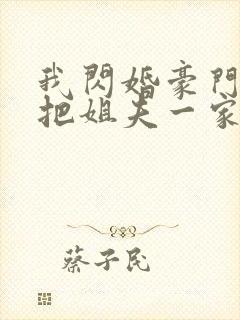 我閃婚豪門
把姐夫一家
蔡子民